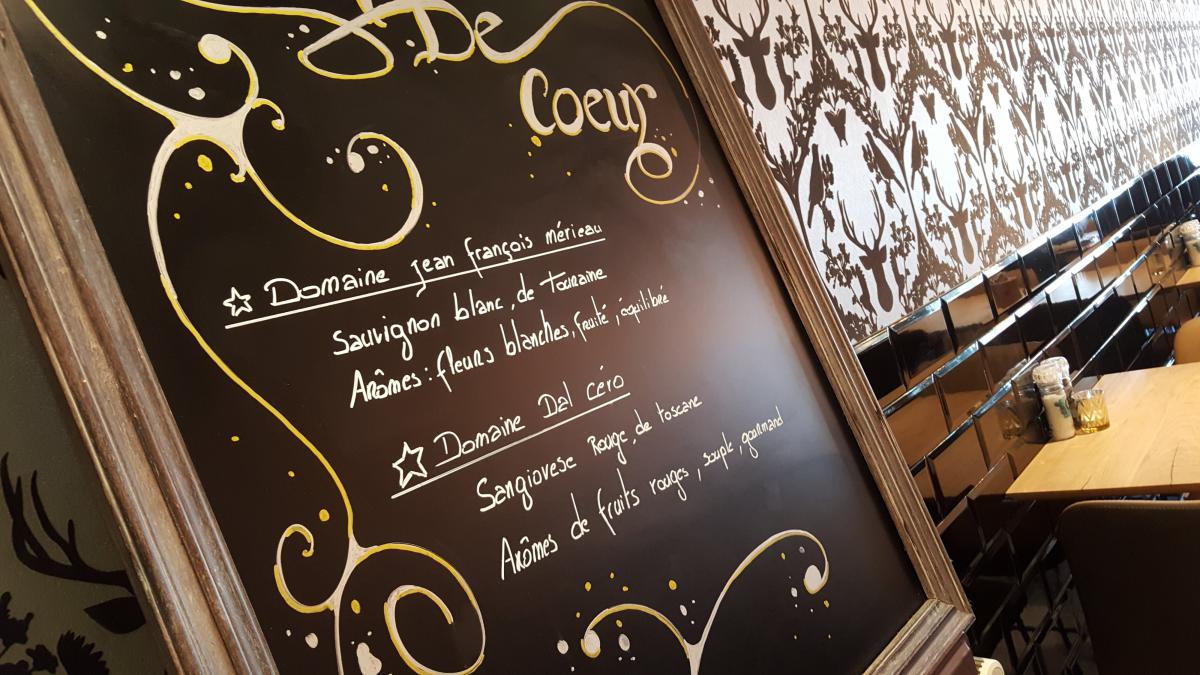 De
Coeur
Domaine Jean François Mérieau
Sauvignon blanc, de Touraine
Arômes : fleurs blanches, fruité, équilibré
Domaine Dal Céro
Sangiovese Rouge, de Toscane
Arômes de fruits rouges, souple, gourmand